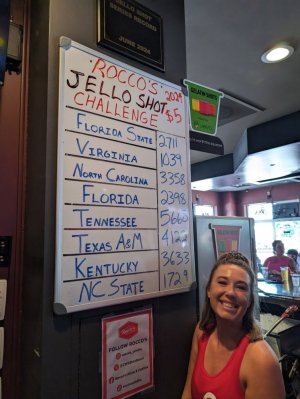 JELLO SHOT
SERIES RECORD
JUNE 2024
ROCCO'S 2024
JELLO SHOT $5
CHALLENGE
FLORIDA STATE 2711
VIRGINIA 1039
NORTH CAROLINA 3358
FLORIDA 2398
TENNESSEE
TEXAS A&M 4122
KENTUCKY 3633
NC STATE 1729
GELATIN SHOTS
FOLLOW ROCCO'S